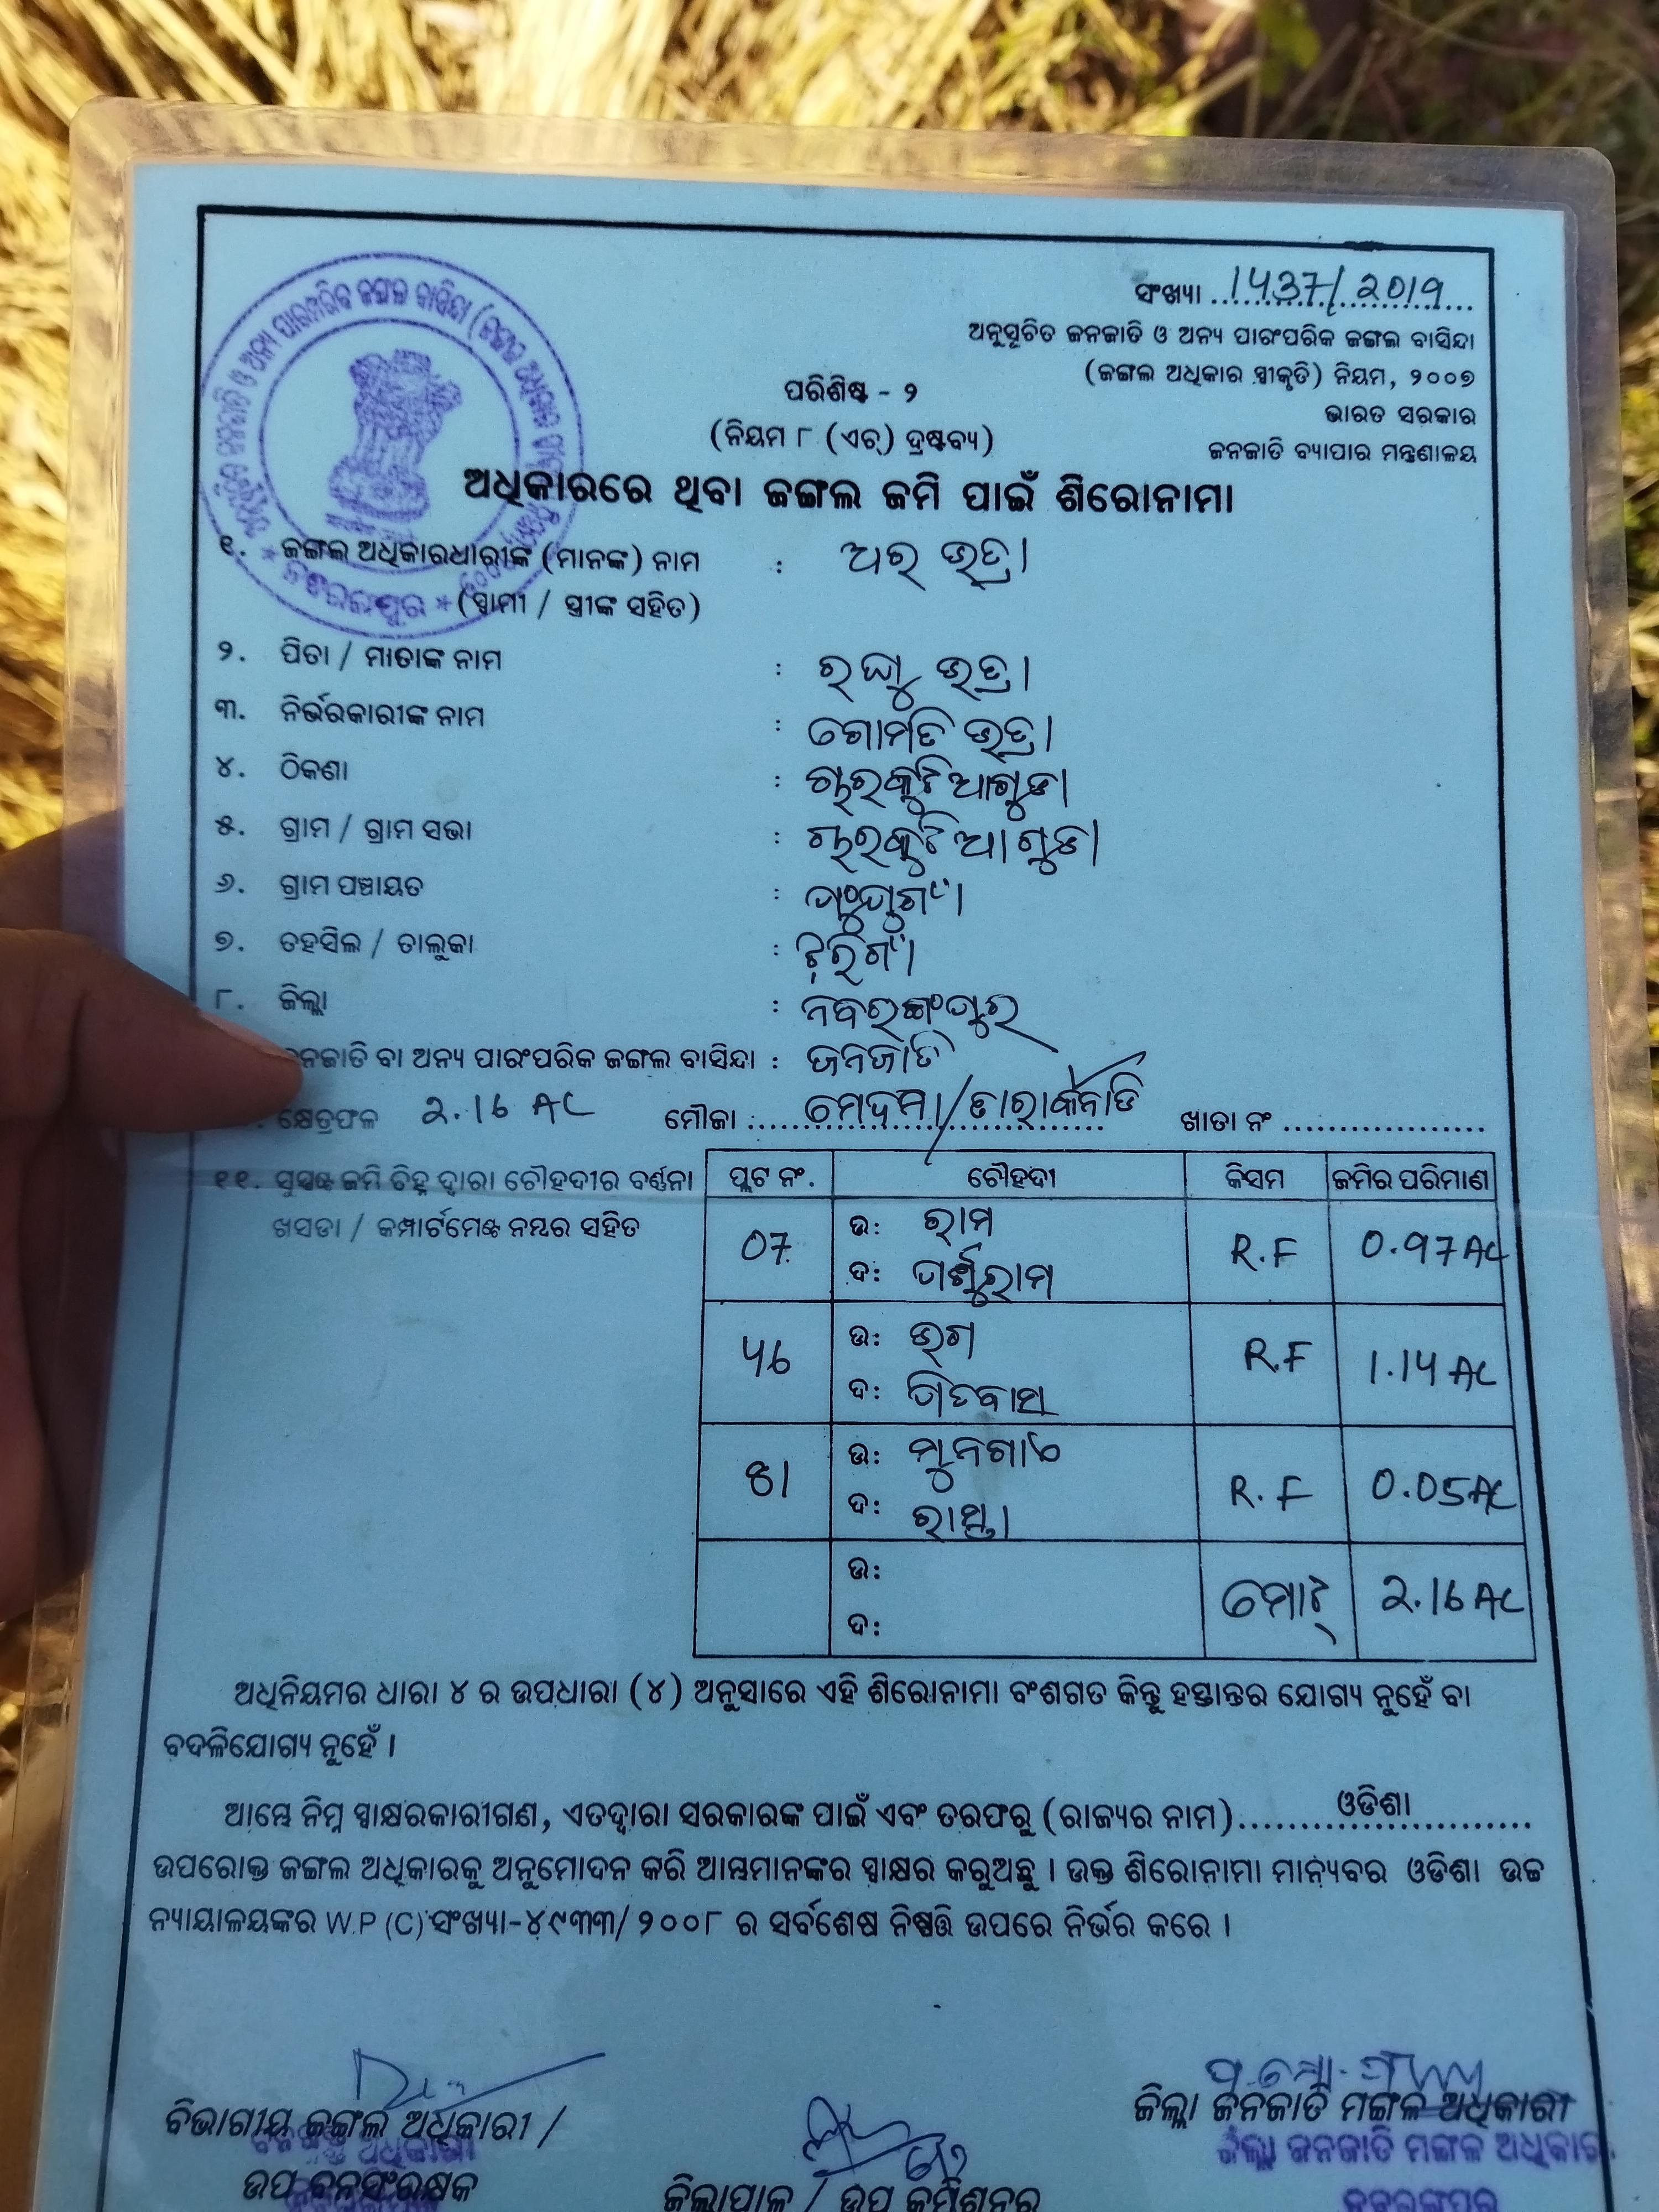 ସଂଖ୍ୟା 1437/2019
ଅନୁସୂଚିତ ଜନଜାତି ଓ ଅନ୍ୟ ପାରଂପରିକ ଜଙ୍ଗଲ ବାସିନ୍ଦା
(ଜଙ୍ଗଲ ଅଧିକାର ସ୍ୱୀକୃତି) ନିୟମ, ୨୦୦୭
ଭାରତ ସରକାର
ଜନଜାତି ବ୍ୟାପାର ମନ୍ତ୍ରଣାଳୟ
ପରିଶିଷ୍ଟ - ୨
(ନିୟମ ୮ (ଏଚ୍) ଦ୍ରଷ୍ଟବ୍ୟ)
ଅଧିକାରରେ ଥିବା ଜଙ୍ଗଲ ଜମି ପାଇଁ ଶିରୋନାମା
୧. ଜଙ୍ଗଲ ଅଧିକାରଧାରୀଙ୍କ (ମାନଙ୍କ) ନାମ : ଅର ଭତ୍ରା
(ସ୍ୱାମୀ / ସ୍ତ୍ରୀଙ୍କ ସହିତ)
୨. ପିତା / ମାତାଙ୍କ ନାମ : ରଘୁ ଭତ୍ରା
୩. ନିର୍ଭରକାରୀଙ୍କ ନାମ : ଗୋମତି ଭତ୍ରା
୪. ଠିକଣା : ଚାରକୁଟିଆଗୁଡା
୫. ଗ୍ରାମ / ଗ୍ରାମ ସଭା : ଚାରକୁଟିଆଗୁଡା
୬. ଗ୍ରାମ ପଞ୍ଚାୟତ :
୭. ତହସିଲ / ତାଲୁକା : ଝରିଗାଁ
୮. ଜିଲ୍ଲା : ନବରଙ୍ଗପୁର
ଜନଜାତି ବା ଅନ୍ୟ ପାରଂପରିକ ଜଙ୍ଗଲ ବାସିନ୍ଦା : ଜନଜାତି
କ୍ଷେତ୍ରଫଳ 2.16 AC ମୌଜା ମେଦନା/ ଖାତା ନଂ
୧୧. ସୁସ୍ପଷ୍ଟ ଜମି ଚିହ୍ନ ଦ୍ୱାରା ଚୌହଦୀର ବର୍ଣ୍ଣନା
ଖସଡା / କମ୍ପାର୍ଟମେଣ୍ଟ ନମ୍ବର ସହିତ
ପ୍ଲଟ ନଂ. ଚୌହଦୀ କିସମ ଜମିର ପରିମାଣ
07 ଉ: ରାମ R.F 0.97 AC
ଦ: ପର୍ଶୁରାମ
46 ଉ: ଭଗ R.F 1.14 AC
ଦ: ପିତବାସ
81 ଉ: R.F 0.05 AC
ଦ: ରାସ୍ତା
ଉ: ମୋଟ୍ 2.16 AC
ଦ:
ଅଧିନିୟମର ଧାରା ୪ ର ଉପଧାରା (୪) ଅନୁସାରେ ଏହି ଶିରୋନାମା ବଂଶଗତ କିନ୍ତୁ ହସ୍ତାନ୍ତର ଯୋଗ୍ୟ ନୁହେଁ ବା
ବଦଳିଯୋଗ୍ୟ ନୁହେଁ ।
ଆମ୍ଭେ ନିମ୍ନ ସ୍ୱାକ୍ଷରକାରୀଗଣ, ଏତଦ୍ୱାରା ସରକାରଙ୍କ ପାଇଁ ଏବଂ ତରଫରୁ (ରାଜ୍ୟର ନାମ) ଓଡିଶା
ଉପରୋକ୍ତ ଜଙ୍ଗଲ ଅଧିକାରକୁ ଅନୁମୋଦନ କରି ଆମ୍ଭମାନଙ୍କର ସ୍ୱାକ୍ଷର କରୁଅଛୁ । ଉକ୍ତ ଶିରୋନାମା ମାନ୍ୟବର ଓଡିଶା ଉଚ୍ଚ
ନ୍ୟାୟାଳୟଙ୍କର W.P (C) ସଂଖ୍ୟା-୪୯୩୩/ ୨୦୦୮ ର ସର୍ବଶେଷ ନିଷ୍ପତ୍ତି ଉପରେ ନିର୍ଭର କରେ ।
ବିଭାଗୀୟ ଜଙ୍ଗଲ ଅଧିକାରୀ /
ଉପ ବନସଂରକ୍ଷକ
ଜିଲ୍ଲାପାଳ / ଉପ କମିଶନର
ଜିଲ୍ଲା ଜନଜାତି ମଙ୍ଗଳ ଅଧିକାରୀ
ଜିଲ୍ଲା ଜନଜାତି ମଙ୍ଗଳ ଅଧିକାରୀ
ନବରଙ୍ଗପୁର